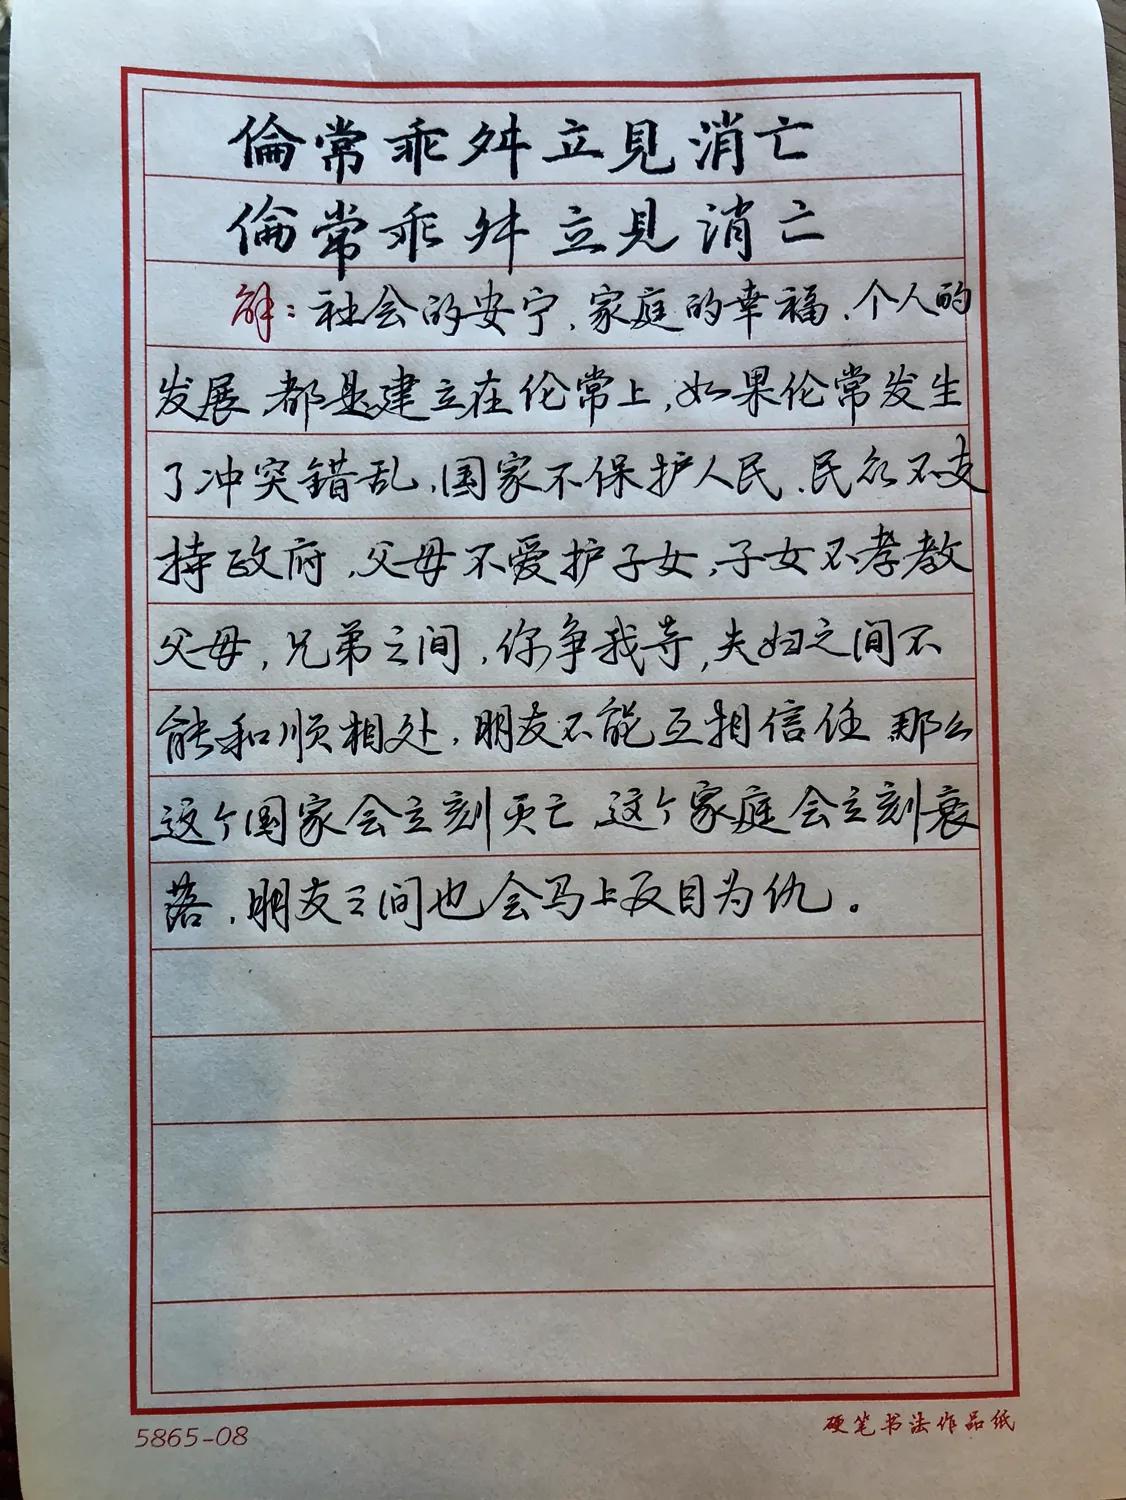 倫常乖舛立見消亡
倫常乖舛立見消亡
解：社会的安宁、家庭的幸福、个人的
发展，都是建立在伦常上，如果伦常发生
了冲突错乱，国家不保护人民、民众不支
持政府，父母不爱护子女，子女不孝敬
父母，兄弟之间，你争我夺，夫妇之间不
能和顺相处，朋友不能互相信任 那么
这个国家会立刻灭亡，这个家庭会立刻衰
落，朋友之间也会马上反目为仇。
5865-08
硬笔书法作品纸